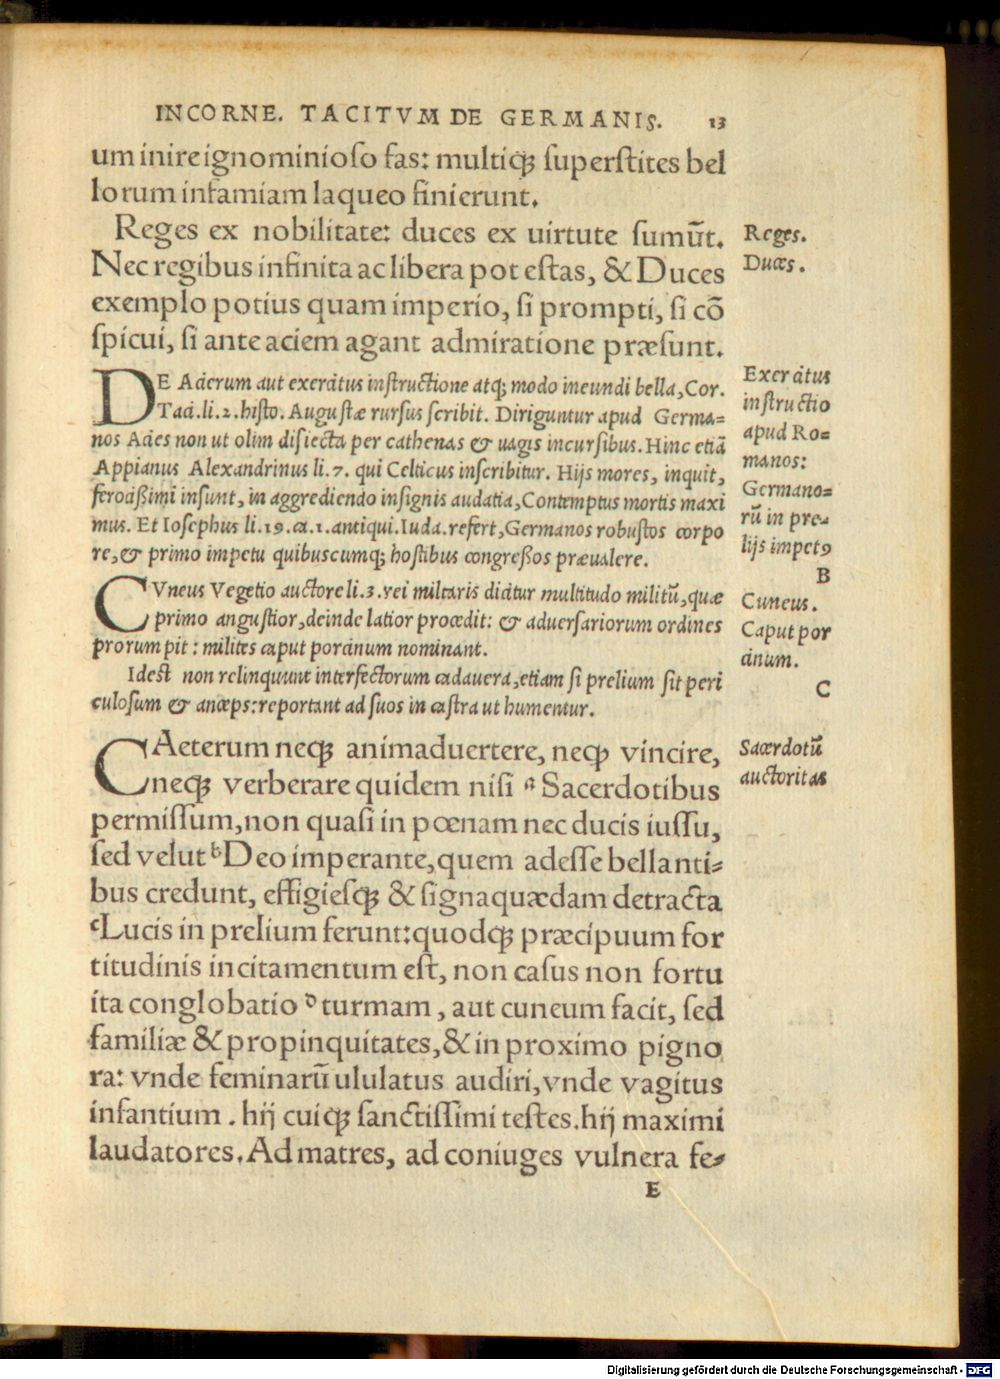 IN CORNE. TACITVM DE GERMANIS. 13
um inire ignominioso fas: multiqꝫ superstites bel
lorum infamiam laqueo finierunt.
Reges ex nobilitate: duces ex uirtute sumūt.
Nec regibus infinita ac libera potestas, & Duces
exemplo potius quam imperio, si prompti, si cō
spicui, si ante aciem agant admiratione præsunt.
Reges.
Duces.
DE Acierum aut exercitus instructione atqꝫ modo ineundi bella, Cor.
Taci. li. 2. histo. Augustæ rursus scribit. Diriguntur apud Germa=
nos Acies non ut olim disiecta per cathenas & uagis incursibus. Hinc etiā
Appianus Alexandrinus li. 7. qui Celticus inscribitur. Hijs mores, inquit,
ferocißimi insunt, in aggrediendo insignis audatia, Contemptus mortis maxi
mus. Et Iosephus li. 19. ca. 1. antiqui. Iuda. refert, Germanos robustos corpo
re, & primo impetu quibuscumqꝫ hostibus congreßos præualere.
Exercitus
instructio
apud Ro=
manos:
Germano=
rū in pre=
lijs impetꝰ
B
CVneus Vegetio auctore li. 3. rei militaris dicitur multitudo militū, quæ
primo angustior, deinde latior procedit: & aduersariorum ordines
prorumpit: milites caput porcinum nominant.
Cuneus.
Caput por
cinum.
Idest non relinquunt interfectorum cadauera, etiam si prelium sit peri
culosum & anceps: reportant ad suos in castra ut humentur.
C
CAeterum neqꝫ animaduertere, neqꝫ vincire,
neqꝫ verberare quidem nisi ᵃ Sacerdotibus
permissum, non quasi in pœnam nec ducis iussu,
sed velut ᵇ Deo imperante, quem adesse bellanti=
bus credunt, effigiesqꝫ & signa quædam detracta
ᶜ Lucis in prelium ferunt: quodqꝫ præcipuum for
titudinis incitamentum est, non casus non fortu
ita conglobatio ᴰ turmam, aut cuneum facit, sed
familiæ & propinquitates, & in proximo pigno
ra: vnde feminarū ululatus audiri, vnde vagitus
infantium. hij cuiqꝫ sanctissimi testes. hij maximi
laudatores. Ad matres, ad coniuges vulnera fe=
Sacerdotū
auctoritas
E
Digitalisierung gefördert durch die Deutsche Forschungsgemeinschaft - DFG